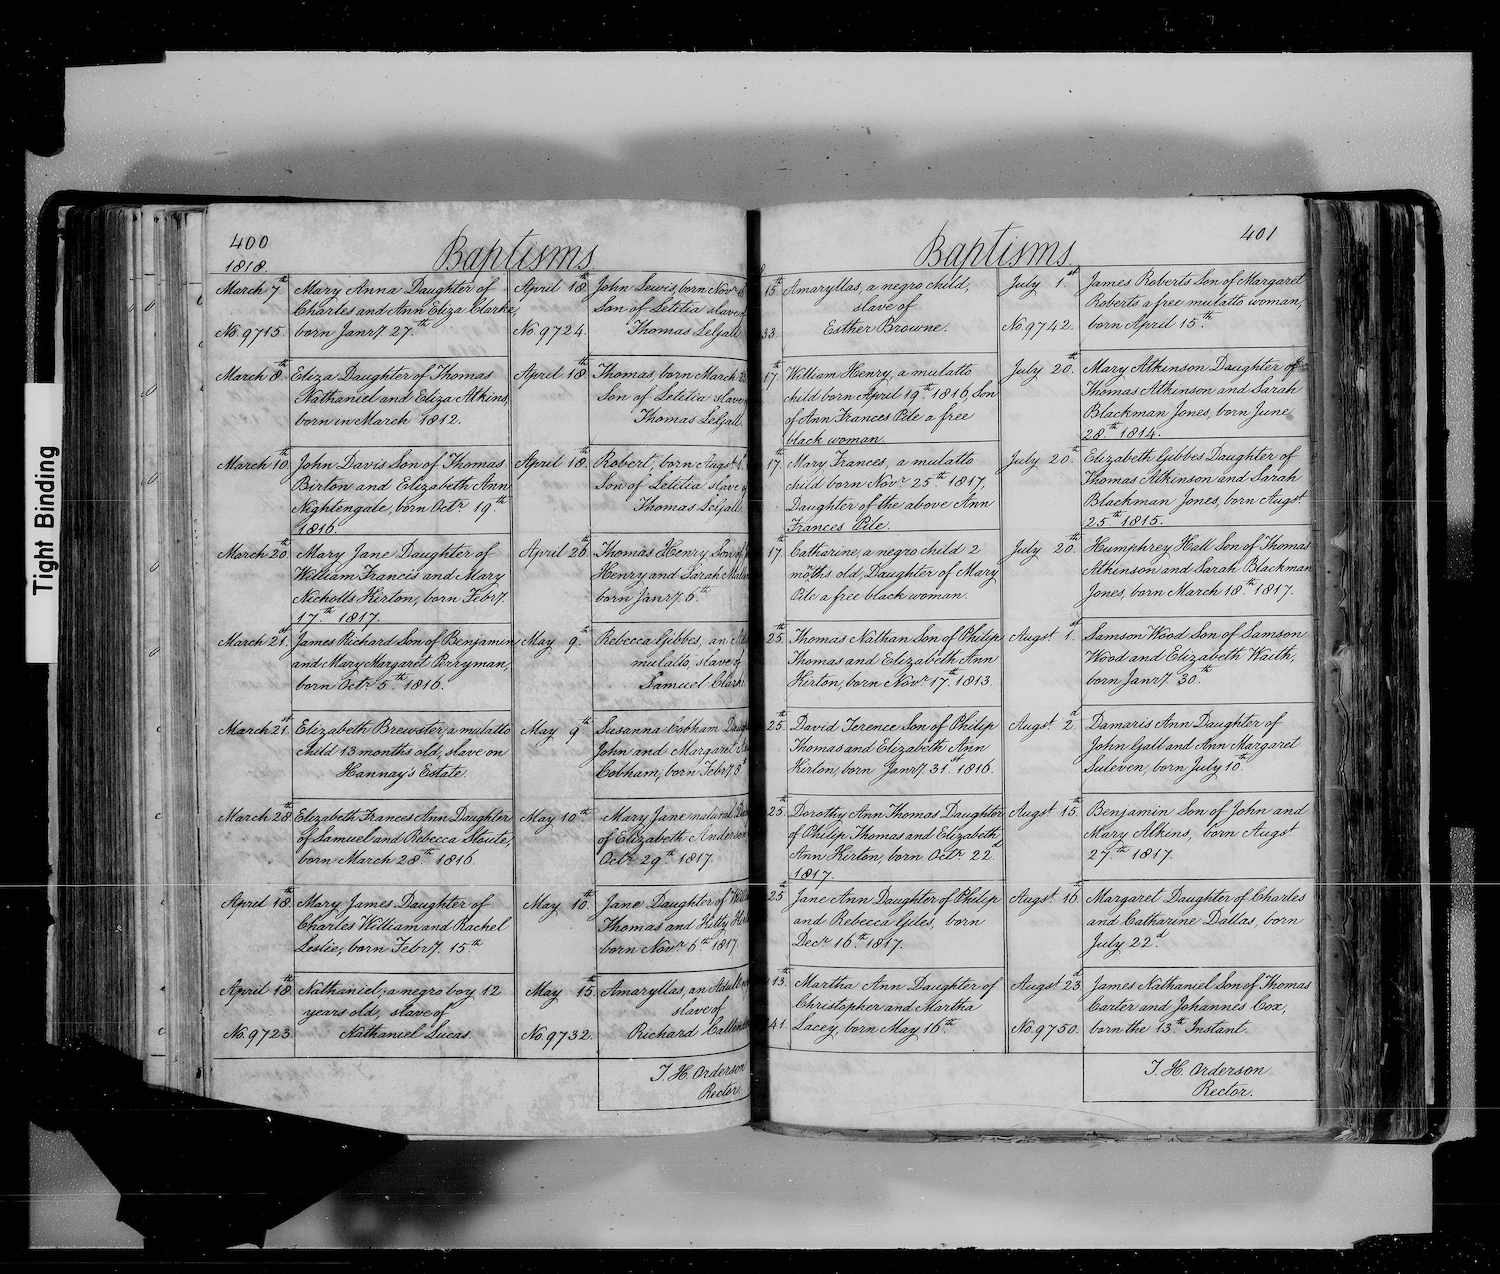 Tight Binding
400
1818.
Baptisms
March 7th
No. 9715.
Mary Anna Daughter of
Charles and Ann Eliza Clarke,
born Janry 27.th
March 8.th
Eliza Daughter of Thomas
Nathaniel and Eliza Atkins,
born in March 1812.
March 10.th
John Davis Son of Thomas
Birton and Elizabeth Ann
Nightengale, born Octr 19th
1816.
March 20.th
Mary Jane Daughter of
William Francis and Mary
Nicholls Kirton, born Febry
17.th 1817.
March 21.st
James Richard Son of Benjamin
and Mary Margaret Perryman,
born Octr 5.th 1816.
March 21.st
Elizabeth Brewster, a mulatto
child 13 months old, slave on
Hannay's Estate.
March 28th
Elizabeth Frances Ann Daughter
of Samuel and Rebecca Stoute,
born March 28th 1816
April 18.th
Mary James Daughter of
Charles William and Rachel
Leslie, born Febry. 15th
April 18.th
No. 9723
Nathaniel, a negro boy 12
years old, slave of
Nathaniel Lucas.
April 18.th
No. 9724.
John Lewis, born Novr
Son of Letitia slave
Thomas
April 18.th
Thomas, born March
Son of Letitia slave
Thomas
April 18.th
Robert, born Augst
Son of Letitia slave
Thomas
April 26.th
Thomas Henry Son of
Henry and Sarah
born Janry 6.th
May 9.th
Rebecca Gibbes, an
mulatto, slave of
Samuel
May 9th
Susanna Cobham
John and Margaret
Cobham, born Febry
May 10th
Mary Jane natural
of Elizabeth Anderson
Octr 29th 1817.
May 10.th
Jane Daughter of
Thomas and Hetty
born Novr 6th 1817
May 15.th
No. 9732.
Amaryllas, an Adult
slave of
Richard
J. H. Orderson
Rector.
Baptisms
401
15.th
33
Amaryllas, a negro child,
slave of
Esther Browne.
17.th
William Henry, a mulatto
child born April 19th 1816, Son
of Ann Frances Pile a free
black woman.
17.th
Mary Frances, a mulatto
child born Novr 25th 1817,
Daughter of the above Ann
Frances Pile.
17.th
Catharine, a negro child 2
months old, Daughter of Mary
Pile a free black woman.
25.th
Thomas Nathan Son of Philip
Thomas and Elizabeth Ann
Kirton, born Novr 17.th 1813.
25.th
David Terence Son of Philip
Thomas and Elizabeth Ann
Kirton, born Janry. 31.st 1816.
25.th
Dorothy Ann Thomas Daughter
of Philip Thomas and Elizabeth
Ann Kirton, born Octr 22.d
1817.
25.th
Jane Ann Daughter of Philip
and Rebecca Giles, born
Decr 16.th 1817.
13.th
41.
Martha Ann Daughter of
Christopher and Martha
Lacey, born May 16th
July 1.st
No. 9742.
James Roberts Son of Margaret
Roberts a free mulatto woman,
born April 15.th
July 20.th
Mary Atkinson Daughter of
Thomas Atkinson and Sarah
Blackman Jones, born June
28.th 1814.
July 20.th
Elizabeth Gibbes Daughter of
Thomas Atkinson and Sarah
Blackman Jones, born Augst
25.th 1815.
July 20.th
Humphrey Hall Son of Thomas
Atkinson and Sarah Blackman
Jones, born March 18.th 1817.
Augst 1.st
Samson Wood Son of Samson
Wood and Elizabeth Waith,
born Janry. 30.th
Augst 2.d
Damaris Ann Daughter of
John Gall and Ann Margaret
Suleven, born July 10.th
Augst 15.th
Benjamin Son of John and
Mary Atkins, born Augst
27.th 1817.
Augst 16.th
Margaret Daughter of Charles
and Catharine Dallas, born
July 22.d
Augst 23.d
No. 9750.
James Nathaniel Son of Thomas
Carter and Johannis Cox,
born the 13.th Instant.
J. H. Orderson
Rector.